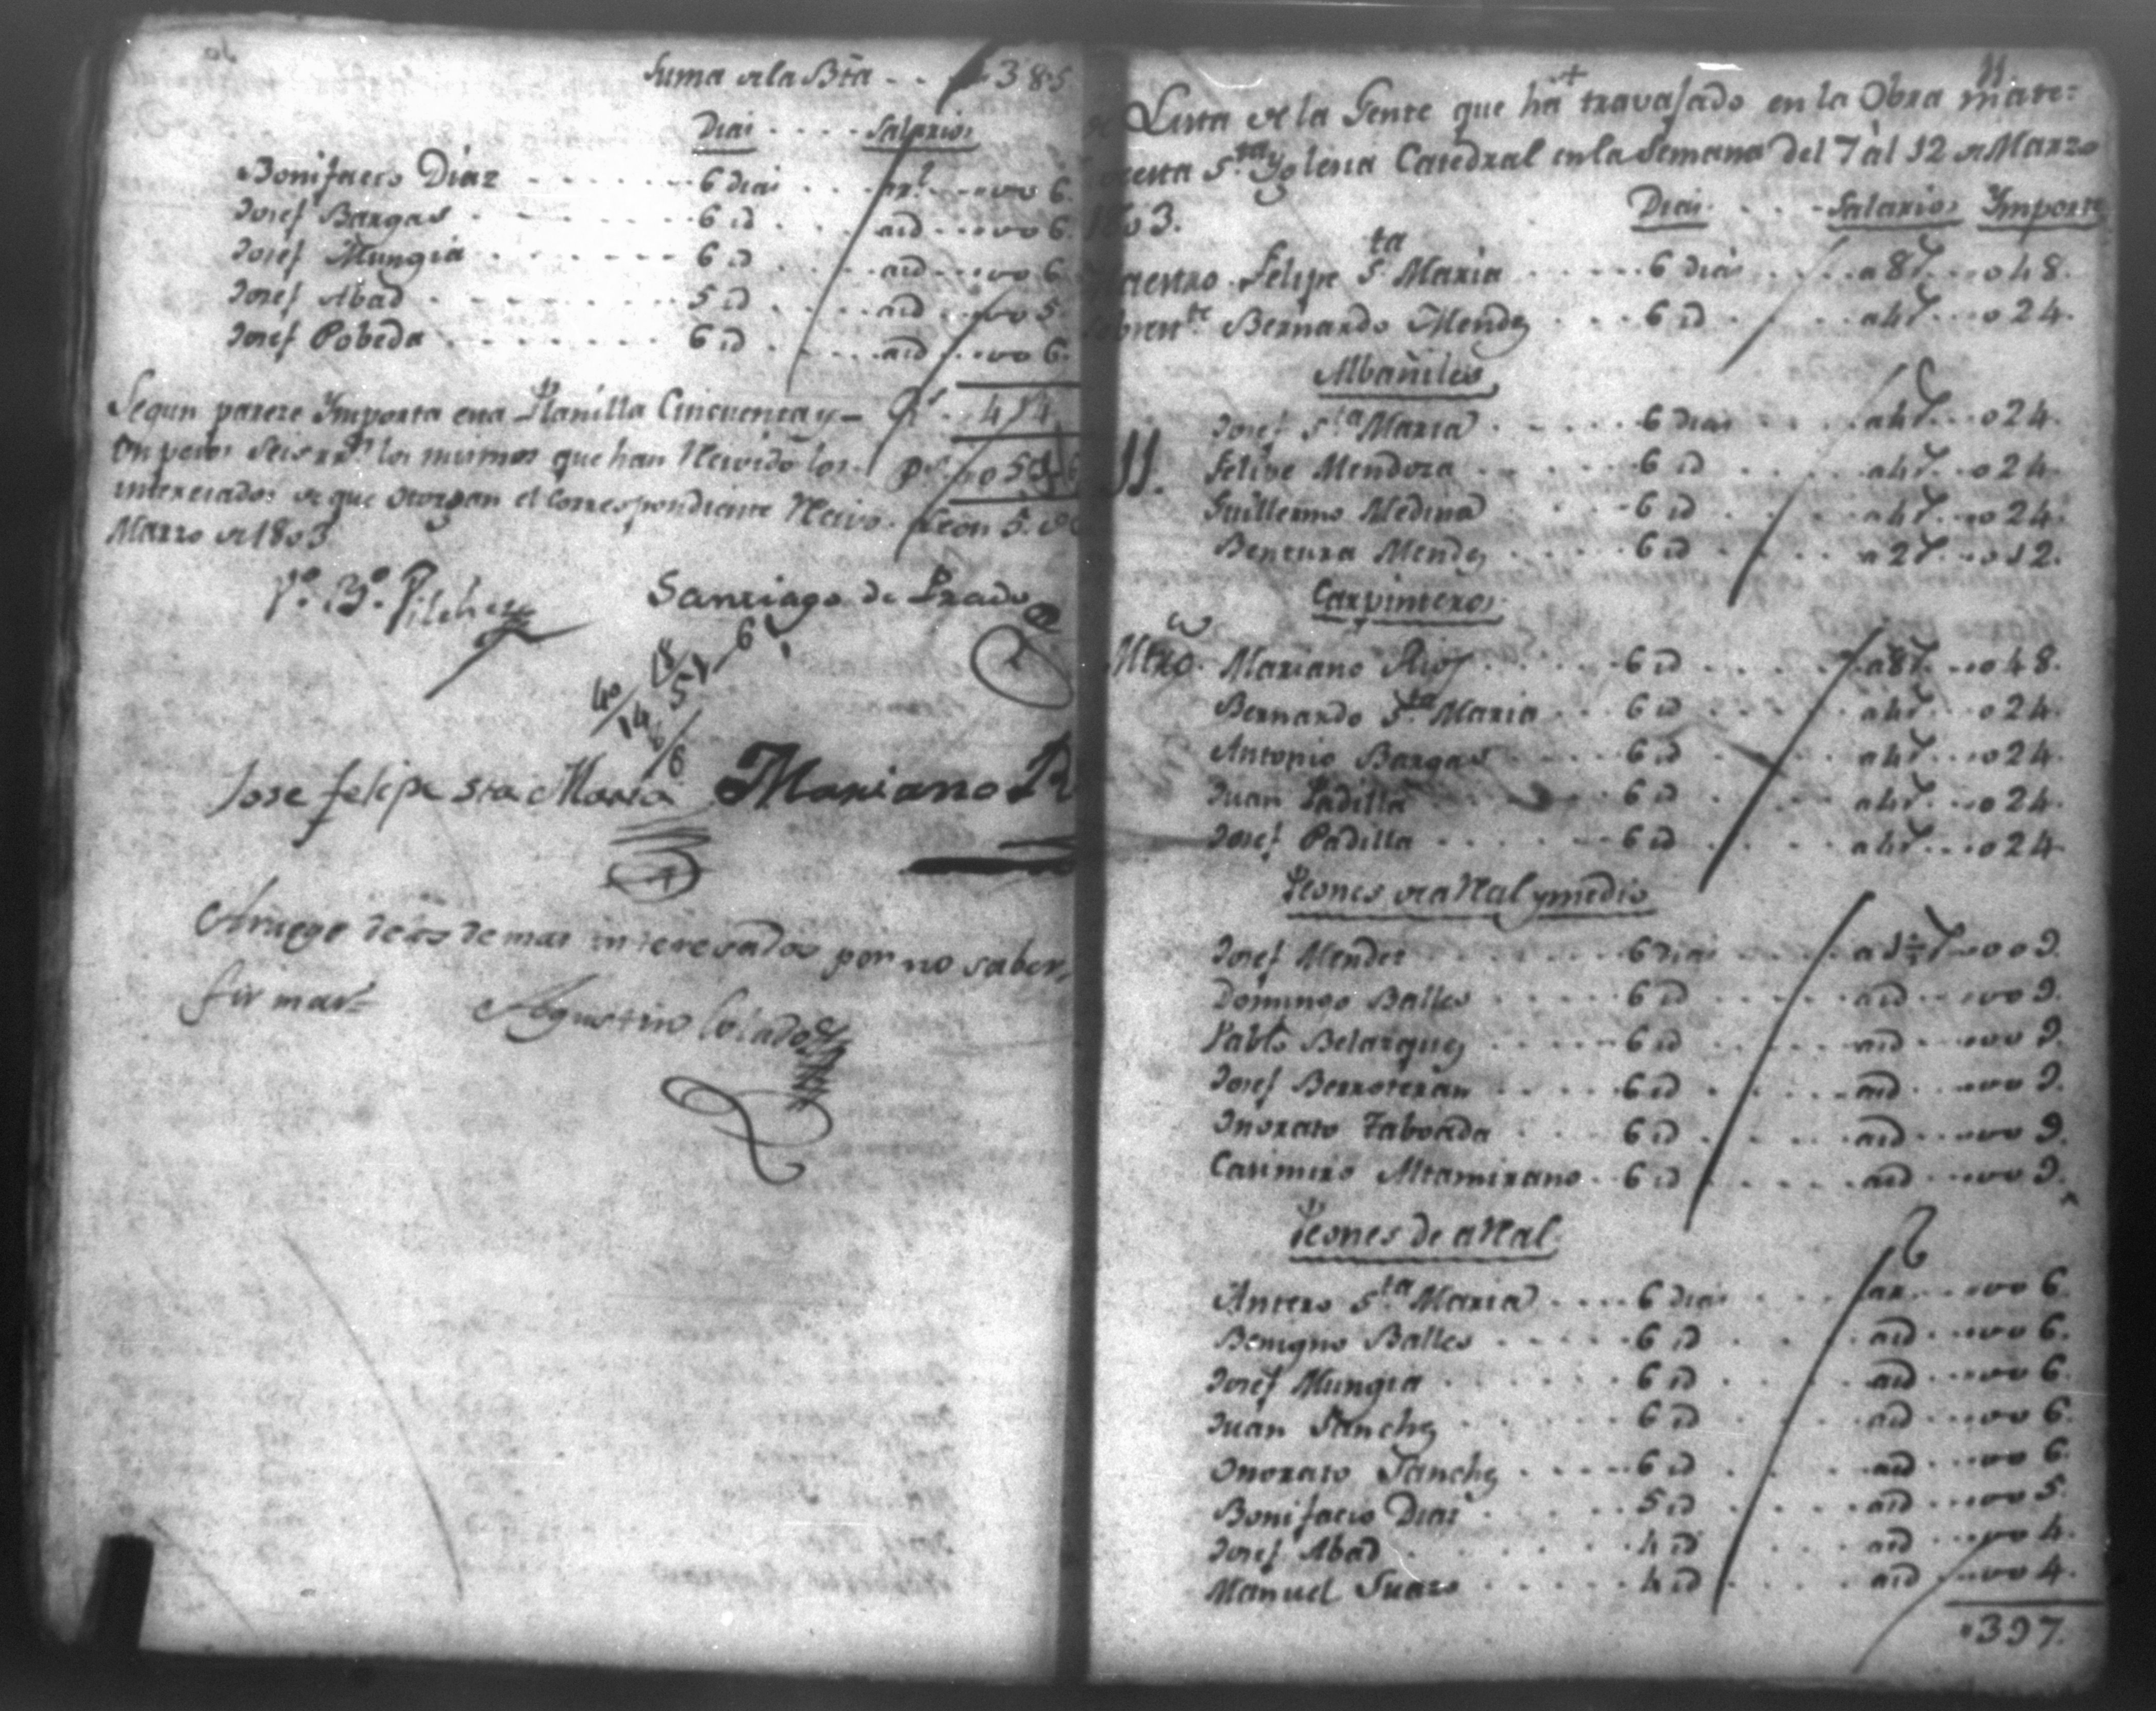 Suma de la Bta . . 385
Dias . . . . Salarios
Bonifacio Diaz . . . . 6 dias . . . a rl . . . 006.
Josef Bargas . . . . 6 id . . . aid . . . 006.
Josef Mungia . . . . 6 id . . . aid . . . 006
Josef Abad . . . . 5 id . . . aid . . . 005.
Josef Pobeda . . . . 6 id . . . aid . . . 006.
Segun parece Importa esta Planilla Cincuenta y – Rs . 414
un pesos seis rrs los mismos que han Recivido los ps. 051,,6
interesados de que otorgan el correspondiente Recivo. Leon 5. de
Marzo de 1803
Vo. Bo. Pilchez Santiago de Prado
40/ 18/ 51–6
14
6/
6
Jose felipe sta Maria Mariano R
Aruego de los demas interesados por no saber
firmar= Agustin Colado
11
Lista de la Gente que ha travajado en la Obra mate=
de esta Sta. Yglesia Catedral en la Semana del 7 àl 12 de Marzo
1803.
Dias . . . Salarios Importe
Maestro. Felipe Sta Maria . . . . 6 dias . . . a 8r . . 048.
Sobrestte Bernardo Mendez . . . . 6 id . . . a 4r . . 024.
Albañiles
Josef Sta Maria . . . . 6 dias . . . a 4r . . 024.
Felipe Mendoza . . . . 6 id . . . a 4r . . 024.
11. Guillermo Medina . . . . 6 id . . . a 4r . . 024.
Bentura Mendez . . . . 6 id . . . a 2r . . 012.
Carpinteros
Mtro. Mariano Rios . . . . 6 id . . . a 8r . . 048.
Bernardo Sta Maria . . . 6 id . . . a 4r . . 024.
Antonio Bargas . . . . 6 id . . . a 4r . . 024.
Juan Padilla . . . . 6 id . . . a 4r . . 024.
Josef Padilla . . . . 6 id . . . a 4r . . 024.
Peones de a Real y medio
Josef Mendez . . . . 6 dias . . . a 1½ r . . 009.
Domingo Balles . . . . 6 id . . . aid . . . 009.
Pablo Belazquez . . . . 6 id . . . aid . . . 009.
Josef Berroteran . . . . 6 id . . . aid . . . 009.
Onorato Taboada . . . . 6 id . . . aid . . . 009.
Casimiro Altamirano . . 6 id . . . aid . . . 009.
Peones de a Real
Antero Sta Maria . . . . 6 dias . . . a r . . . 006.
Benigno Balles . . . . 6 id . . . aid . . . 006.
Josef Mungia . . . . 6 id . . . aid . . . 006.
Juan Sanchez . . . . 6 id . . . aid . . . 006.
Onorato Sanchez . . . . 6 id . . . aid . . . 006.
Bonifacio Dias . . . . 5 id . . . aid . . . 005.
Josef Abad . . . . 4 id . . . aid . . . 004.
Manuel Suazo . . . . 4 id . . . aid . . . 004.
397.